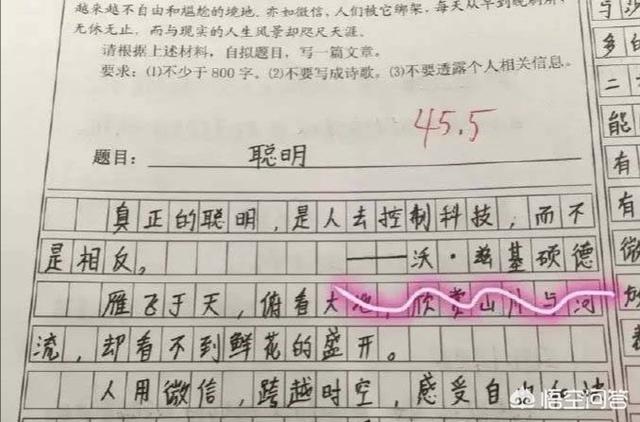 越来越不自由和尴尬的境地。亦如微信，人们被它绑架，每天从早到晚刷屏，
无休无止，而与现实的人生风景却咫尺天涯。
请根据上述材料，自拟题目，写一篇文章。
要求：(1)不少于800字。(2)不要写成诗歌。(3)不要透露个人相关信息。
45.5
题目：聪明
真正的聪明，是人去控制科技，而不
是相反。——沃·兹基硕德
雁飞于天，俯看大地，欣赏山川与河
流，却看不到鲜花的盛开。
人用微信，跨越时空，感受自由
与
多的
二
能
有
有
微
悟空问答